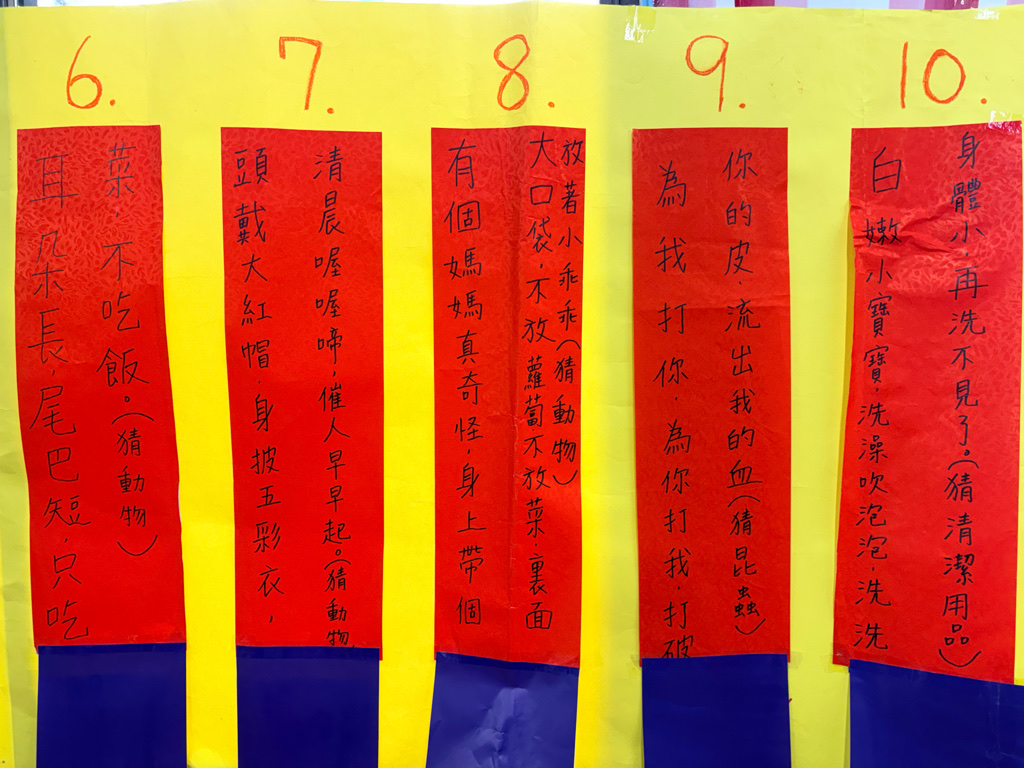 6.
耳朵長，尾巴短，只吃
菜，不吃飯。(猜動物)
7.
頭戴大紅帽，身披五彩衣，
清晨喔喔啼，催人早早起。(猜動物
8.
有個媽媽真奇怪，身上帶個
大口袋，不放蘿蔔不放菜，裏面
放著小乖乖(猜動物)
9.
為我打你，為你打我，打破
你的皮，流出我的血(猜昆蟲)
10.
白嫩小寶寶，洗澡吹泡泡，洗洗
身體小，再洗不見了。(猜清潔用品)